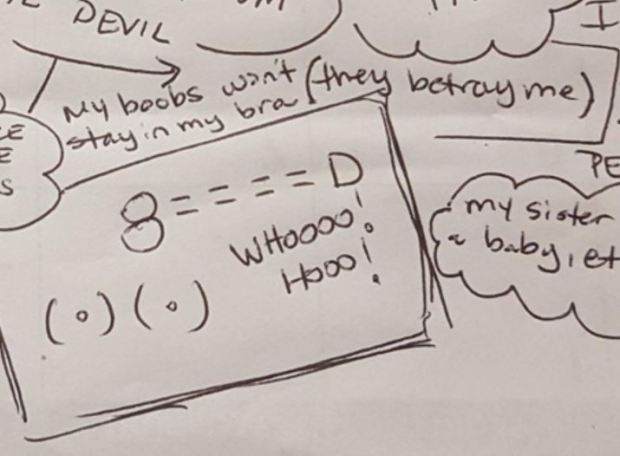 DEVIL
I
My boobs won't (they betray me)
stay in my bra
S
PE
8====D
WHOOOO!
HOOO!
(o)(o)
my sister
a baby, et